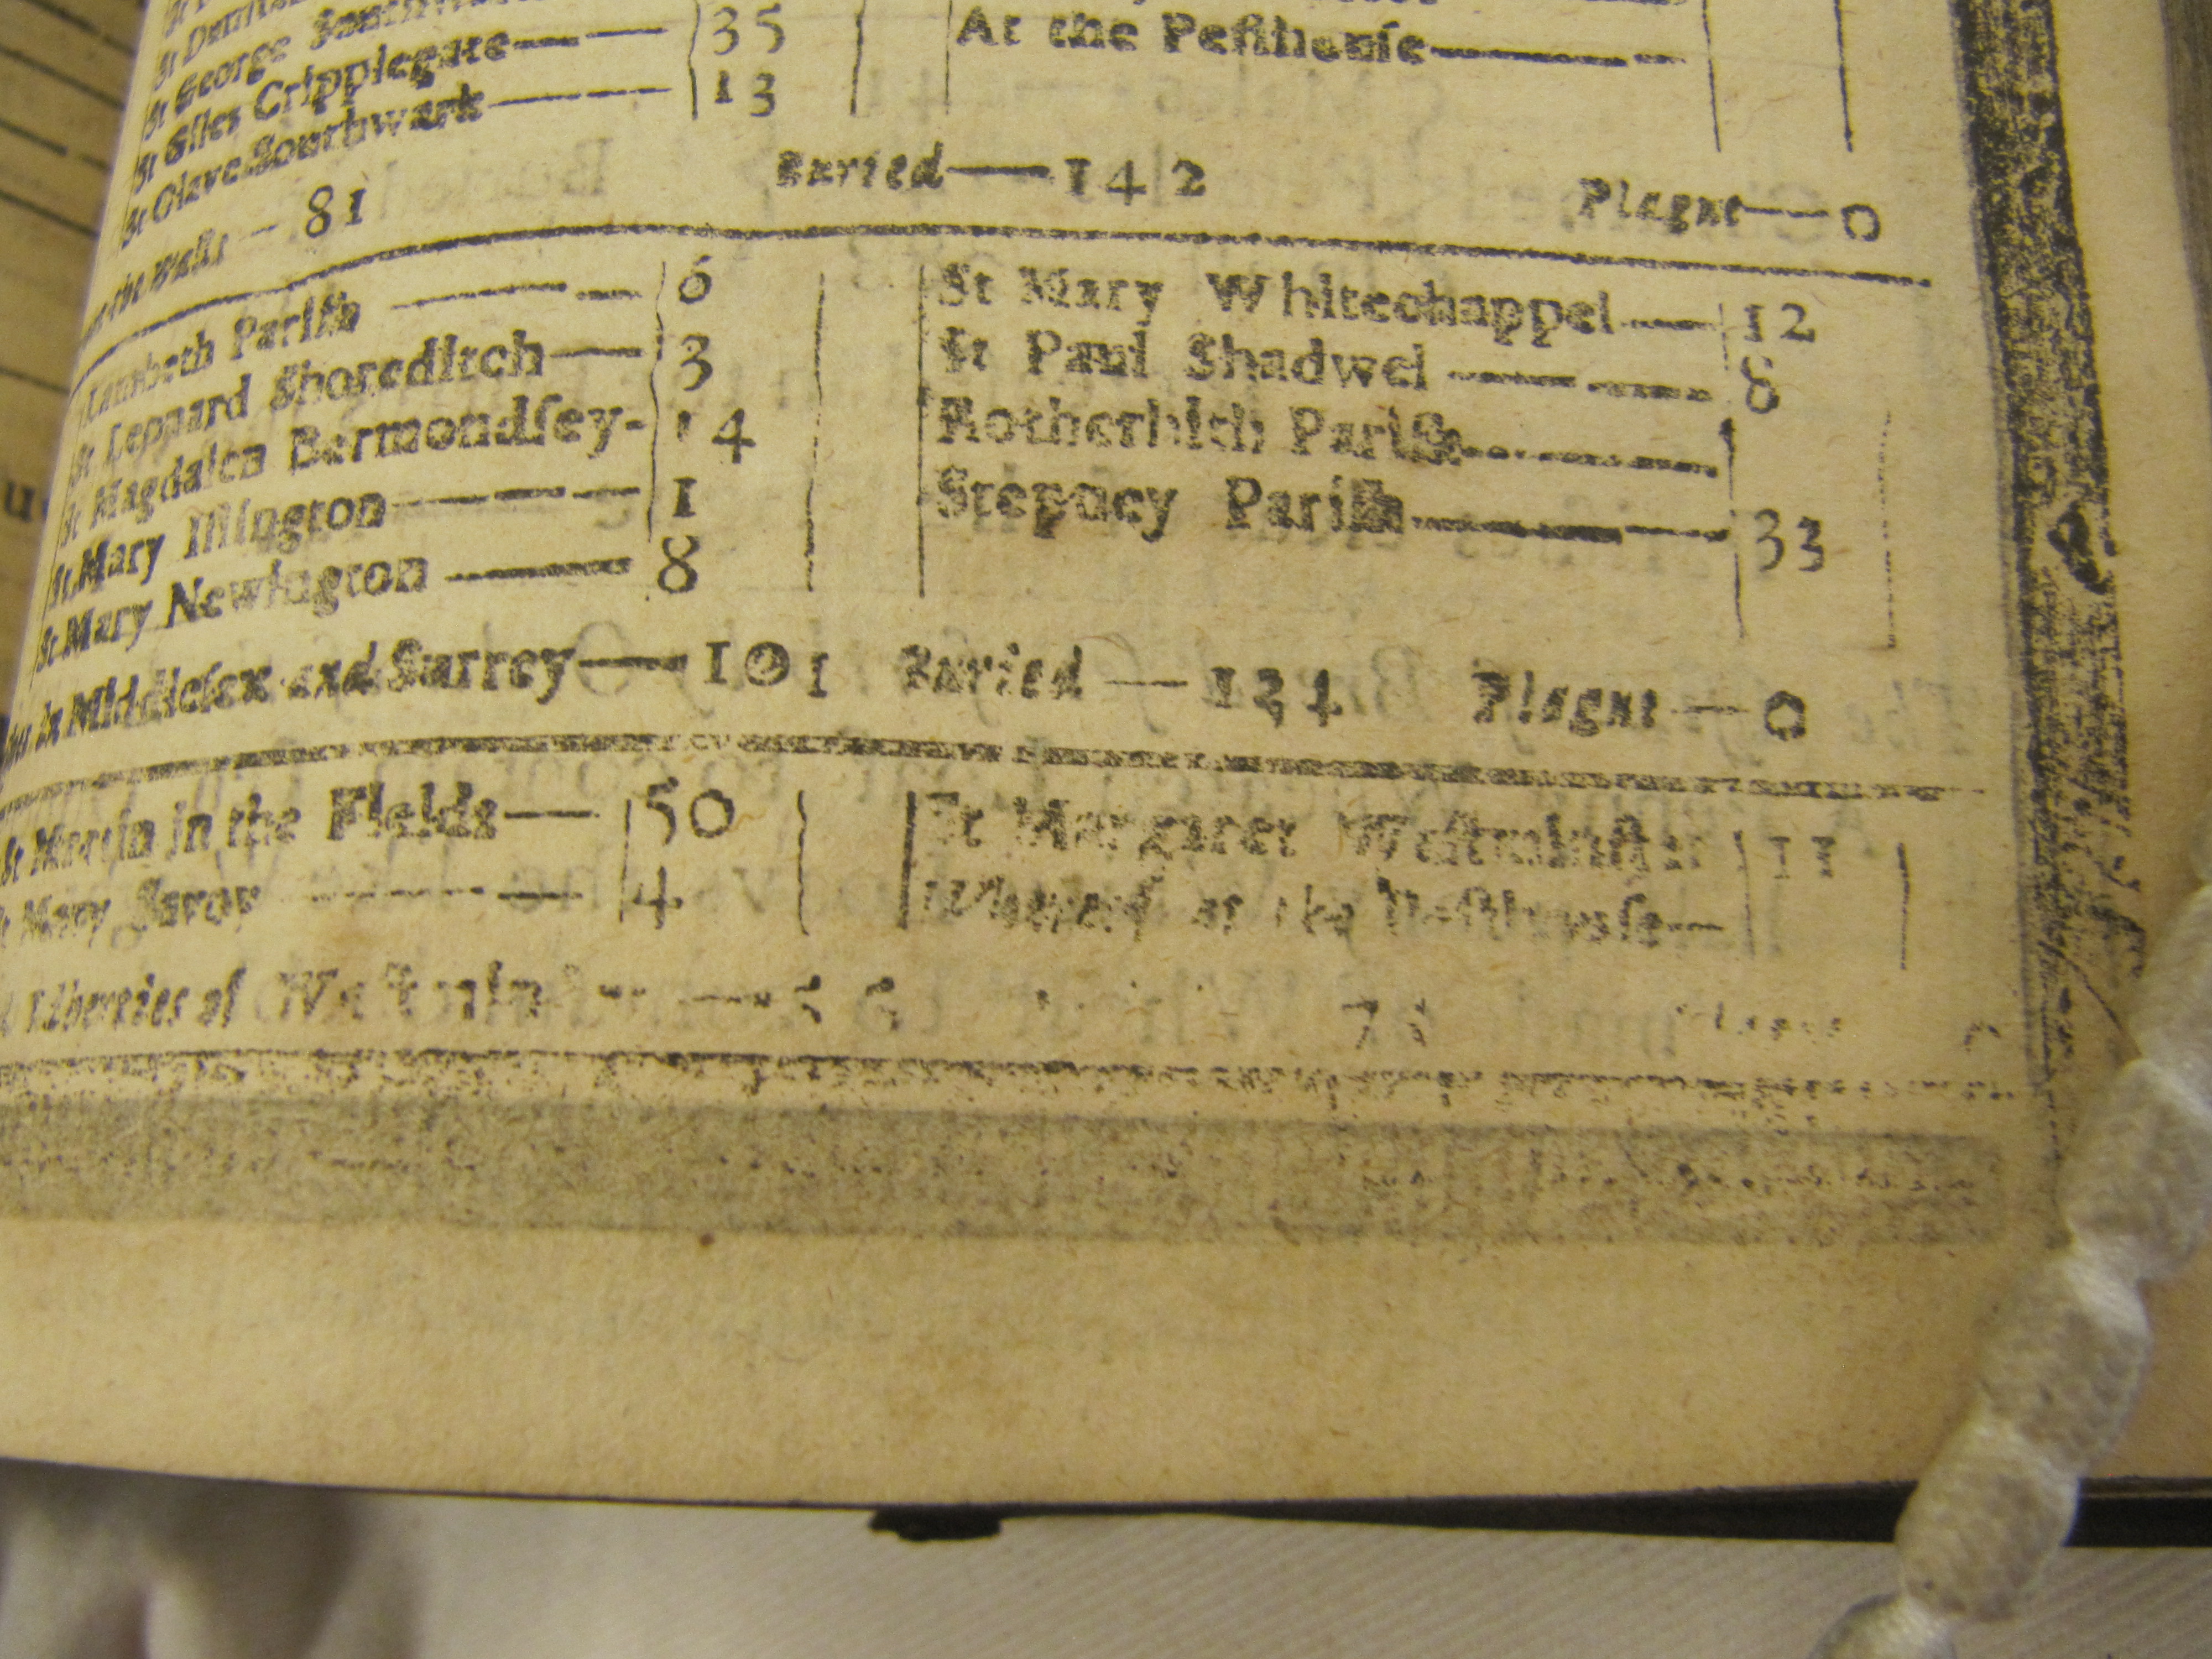 St George
St Giles Cripplegate 35
St Olave Southwark 13
At the Pesthouſe
the Walls — 81 Buried — 142 Plague — 0
Lambeth Pariſh 6
St Leonard Shoreditch — 3
St Magdalen Bermondſey - 14
St Mary Iſlington 1
St Mary Newington 8
St Mary Whitechappel 12
St Paul Shadwel 8
Rotherhith Pariſh
Stepney Pariſh 33
in Middleſex and Surrey — 101 Buried — Plague — 0
St Martin in the Fields — 50
St Mary Savoy 4
St Margaret Weſtminſter 11
at the Peſthouſe —
Liberties of